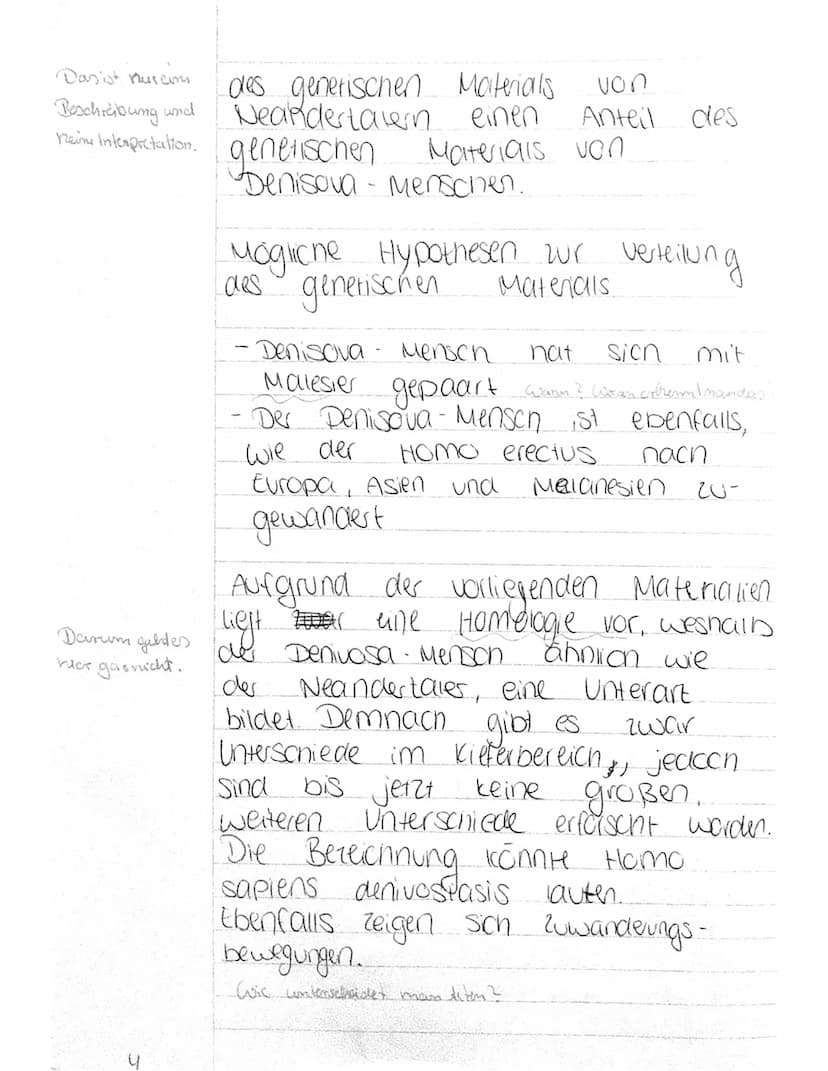 Das ist nur eine
Beschreibung und
keine Interpretation.
des genetischen Materials von
Neandertalern einen Anteil des
genetischen Materials von
Denisova - Menschen.
Mögliche Hypothesen zur Verteilung
des genetischen Materials
- Denisova - Mensch hat sich mit
Malesier gepaart Wann? Woran erkennt man das?
- Der Denisova - Mensch ist ebenfalls,
wie der Homo erectus nach
Europa, Asien und Melanesien zu-
gewandert
Aufgrund der vorliegenden Materialien
liegt eine Homologie vor, weshalb
der Denivosa - Mensch ähnlich wie
der Neandertaler, eine Unterart
bildet. Demnach gibt es zwar
Unterschiede im Kieferbereich, jedoch
sind bis jetzt keine großen,
weiteren Unterschiede erforscht worden.
Darum geht es
hier gar nicht.
Die Bezeichnung könnte Homo
sapiens denivosasis lauten.
Ebenfalls zeigen sich Zuwanderungs-
bewegungen.
Wie unterscheidet man Arten?
4